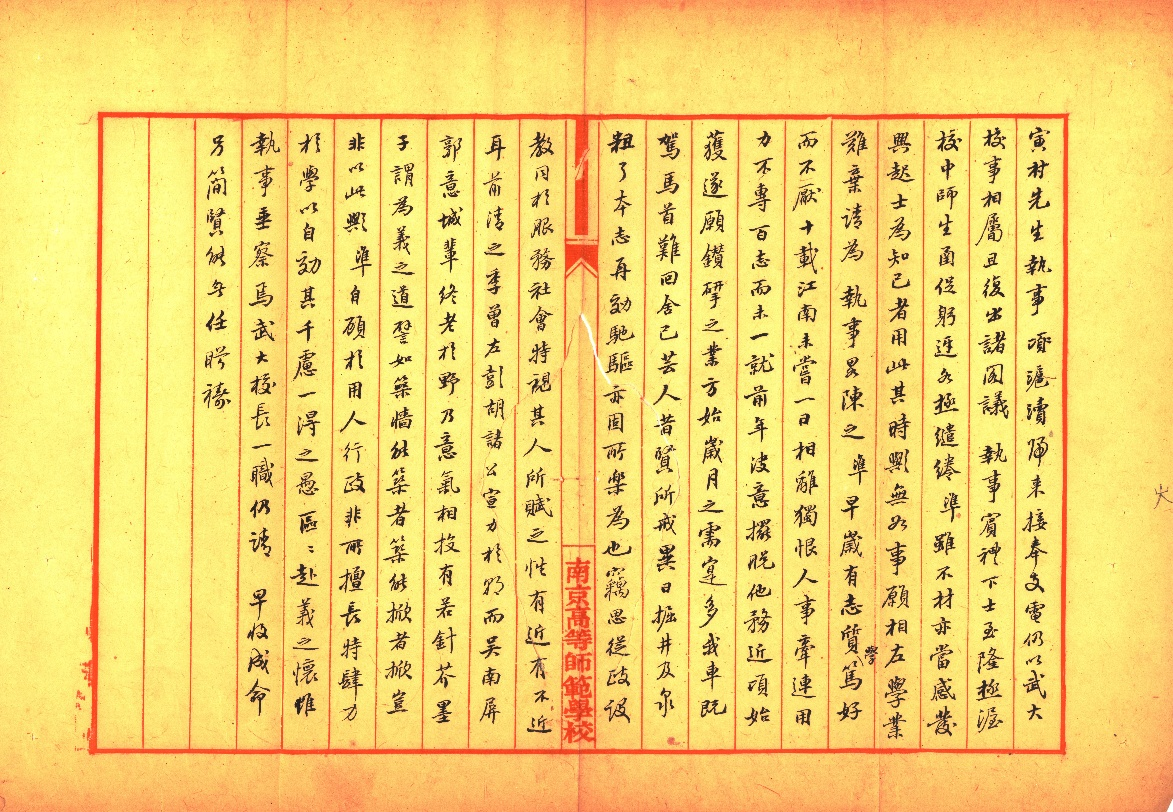 寅村先生執事 項滬瀆歸來接奉支電仍以武大
校事相屬且復出諸閣議 執事賓禮下士至隆極渥
校中師生函促躬迓多極繾綣 準雖不材亦當感發
興起士為知己者用此其時歟無如事願相左學業
難棄請為 執事畧陳之 準早歲有志質學篤好
而不厭十載江南未嘗一日相離獨恨人事牽連用
力不專百志而未一就前年決意擺脫他務近項始
獲遂願鑽研之業方始歲月之需寔多我車既
駕馬首難回舍己芸人昔賢所戒異日掘井及泉
粗了本志再効馳驅亦固所樂為也竊思從政設
教同於服務社會特視其人所賦之性有近有不近
耳前清之季曾左彭胡諸公宣力於朝而吳南屏
郭意城輩終老於野乃意氣相投有若針芥墨
子謂為義之道譬如築墻能築者築能掀者掀豈
非以此歟 準自顧於用人行政非所擅長特肆力
於學以自効其千慮一得之愚區〻赴義之懷惟
執事垂察焉武大校長一職仍請 早收成命
另簡賢能無任盻禱
南京高等師範學校
史